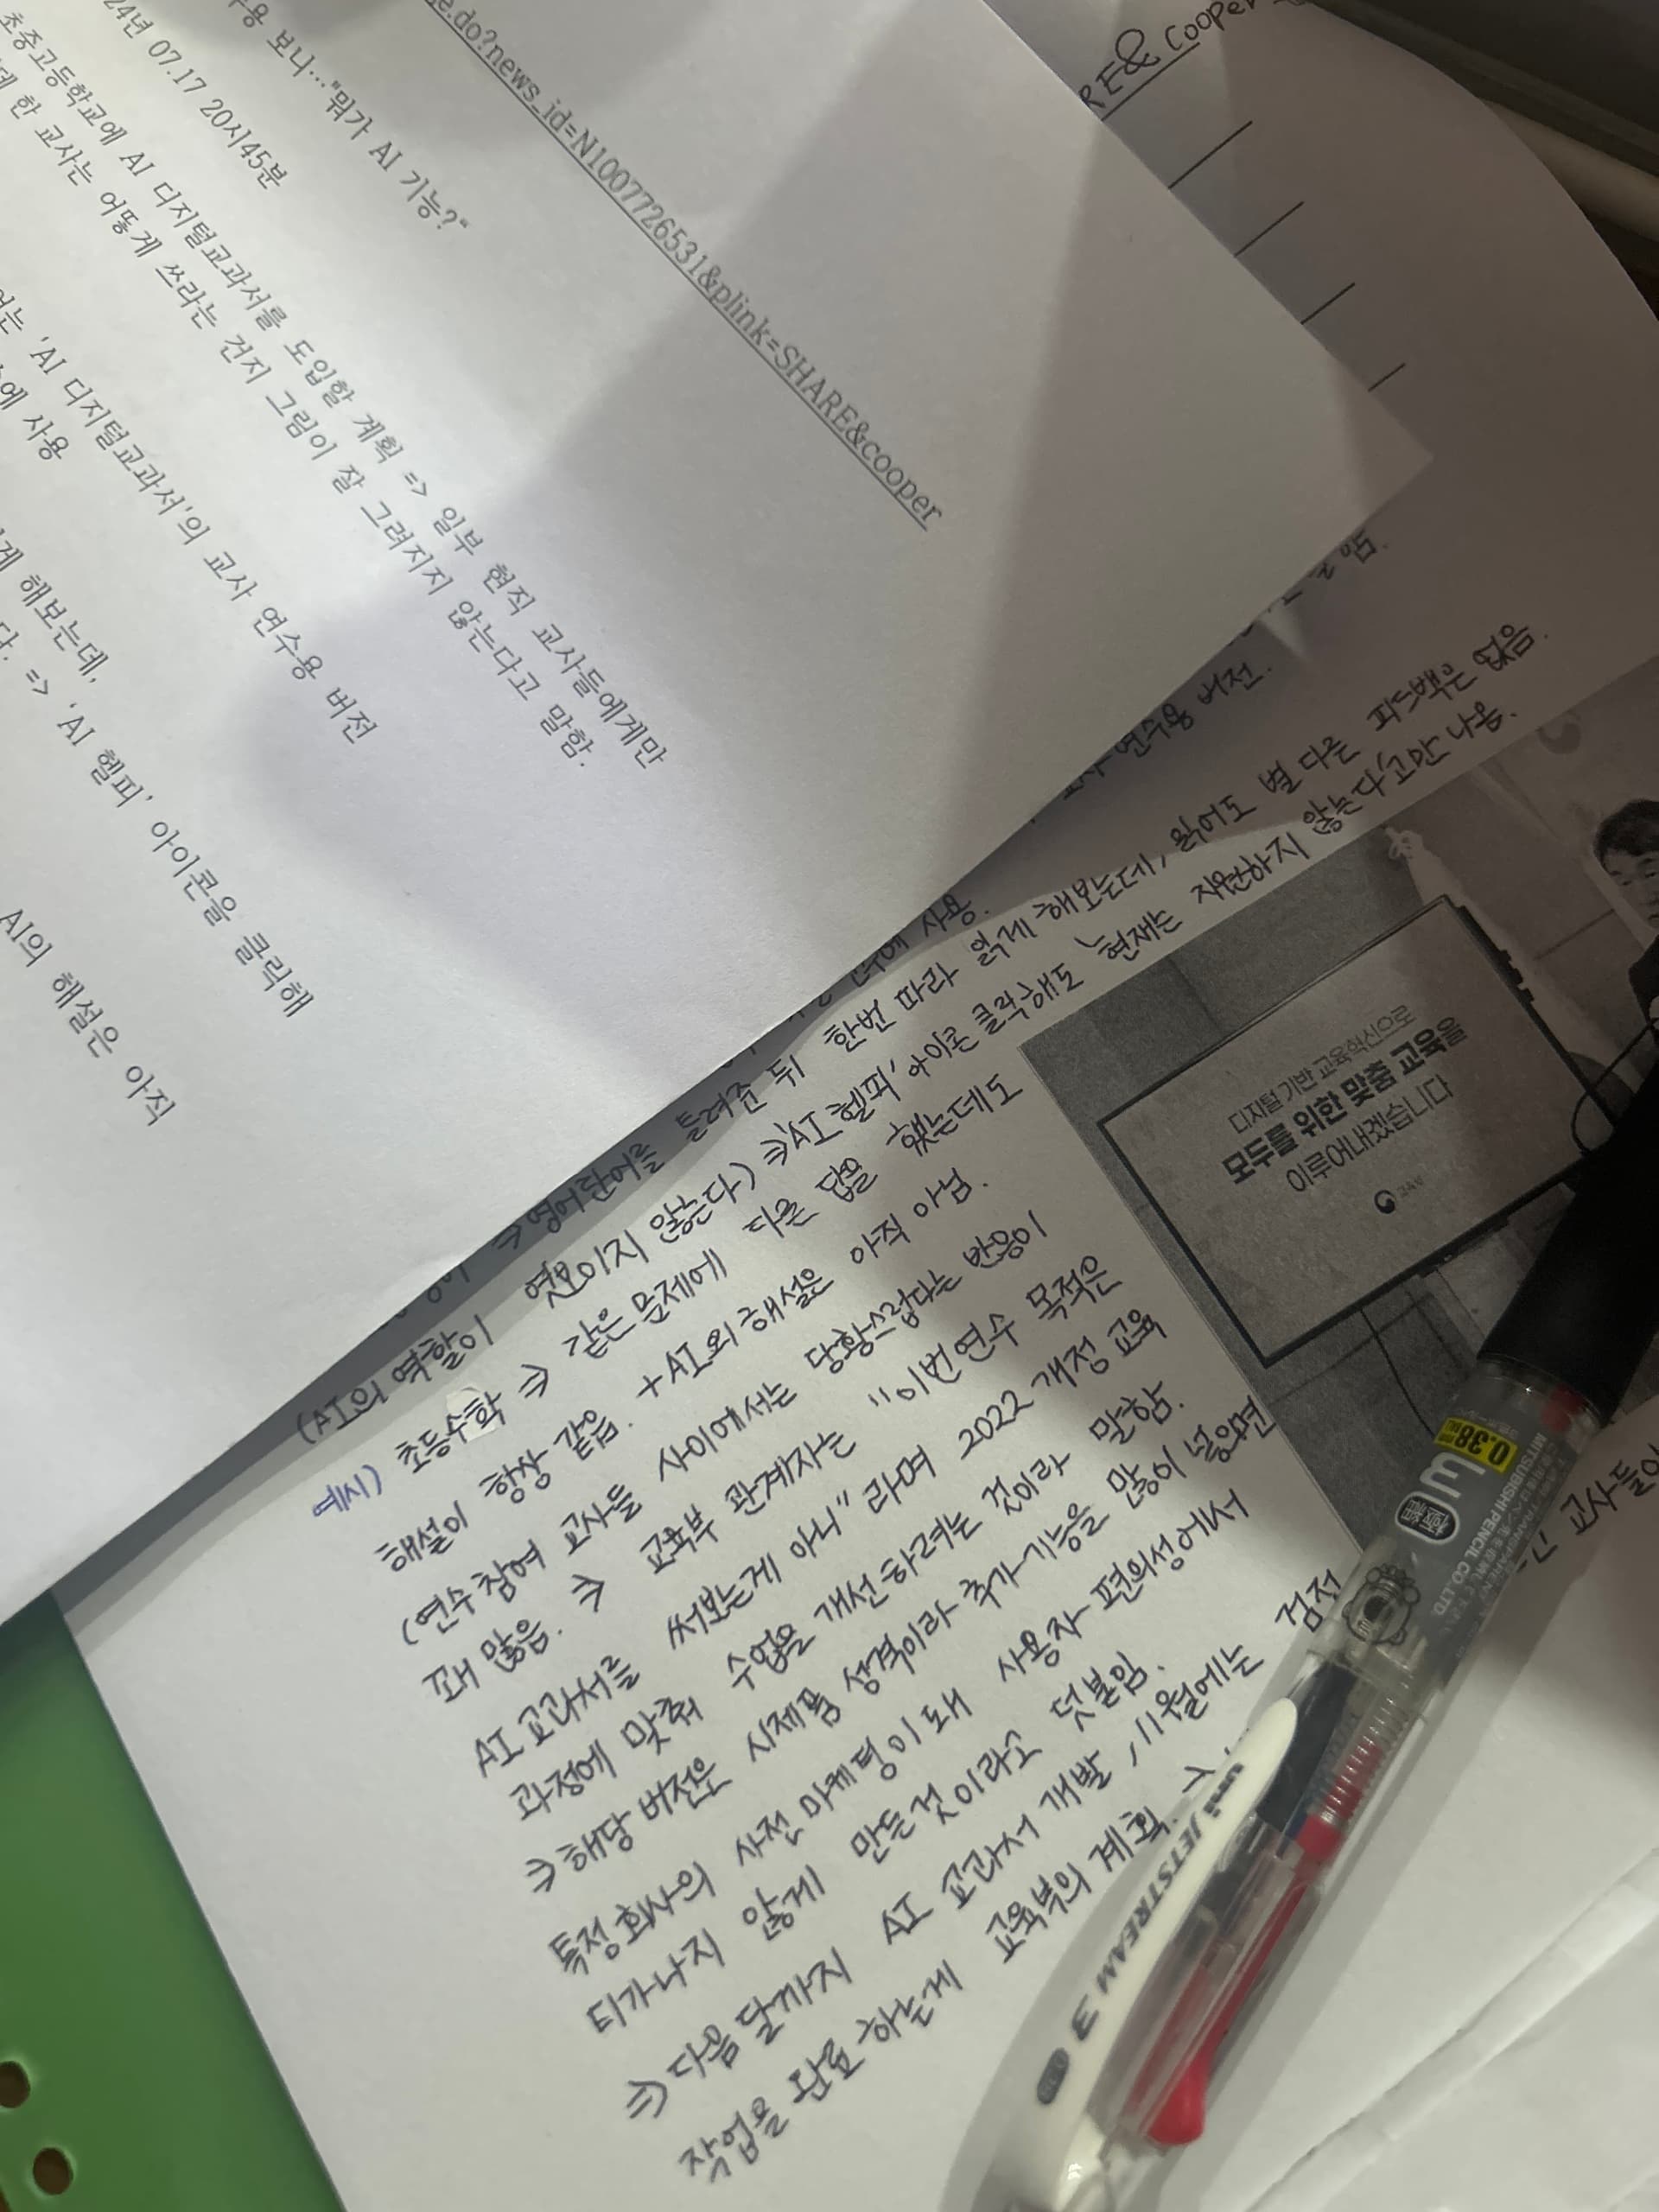 e.do?news_id=N1007726531&plink=SHARE&cooper
용 보니…"뭐가 AI 기능?"
24년 07.17 20시45분
초중고등학교에 AI 디지털교과서를 도입할 계획 => 일부 현직 교사들에게만
한 교사는 어떻게 쓰라는 건지 그림이 잘 그려지지 않는다고 말함.
'AI 디지털교과서'의 교사 연수용 버전
에 사용
게 해보는데,
다. => 'AI 헬피' 아이콘을 클릭해
AI의 해설은 아직
RE&cooper
연수용 버전.
에 사용.
⇒ 영어단어를 들려준 뒤 한번 따라 읽게 해보는데, 읽어도 별 다른 피드백은 없음.
(AI의 역할이 엿보이지 않는다) ⇒ 'AI 헬피' 아이콘 클릭해도 '현재는 지원하지 않는다'고만 나옴.
예시) 초등수학 ⇒ 같은 문제에 다른 답을 했는데도
해설이 항상 같음. + AI의 해설은 아직 아님.
(연수참여 교사들 사이에서는 당황스럽다는 반응이
꽤 많음. ⇒ 교육부 관계자는 "이번연수 목적은
AI 교과서를 써보는게 아니" 라며 2022 개정 교육
과정에 맞춰 수업을 개선하려는 것이라 말함.
⇒ 해당 버전은 시제품 성격이라 추가 기능을 많이 넣으면
특정 회사의 사전 마케팅이 돼 사용자 편의성에서
티가나지 않게 만든것이라고 덧붙임.
⇒ 다음 달까지 AI 교과서 개발, 11월에는 검정
작업을 완료 하는게 교육부의 계획.
디지털 기반 교육혁신으로
모두를 위한 맞춤 교육을
이루어내겠습니다
교육부
교사들이
0.38
MITSUBISHI PENCIL CO.,LTD.
uni JETSTREAM 3